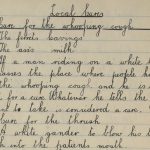 Local Cures
Cure for the whooping cough
The ferret's leavings
The ass's milk
If a man riding on a white h
passes the place where people ha
the whooping cough and he is a
for a cure. Whatever he tells the
to take is considered a cure.
Cure for the thrush
A white gander to blow his b
into the patients mouth.